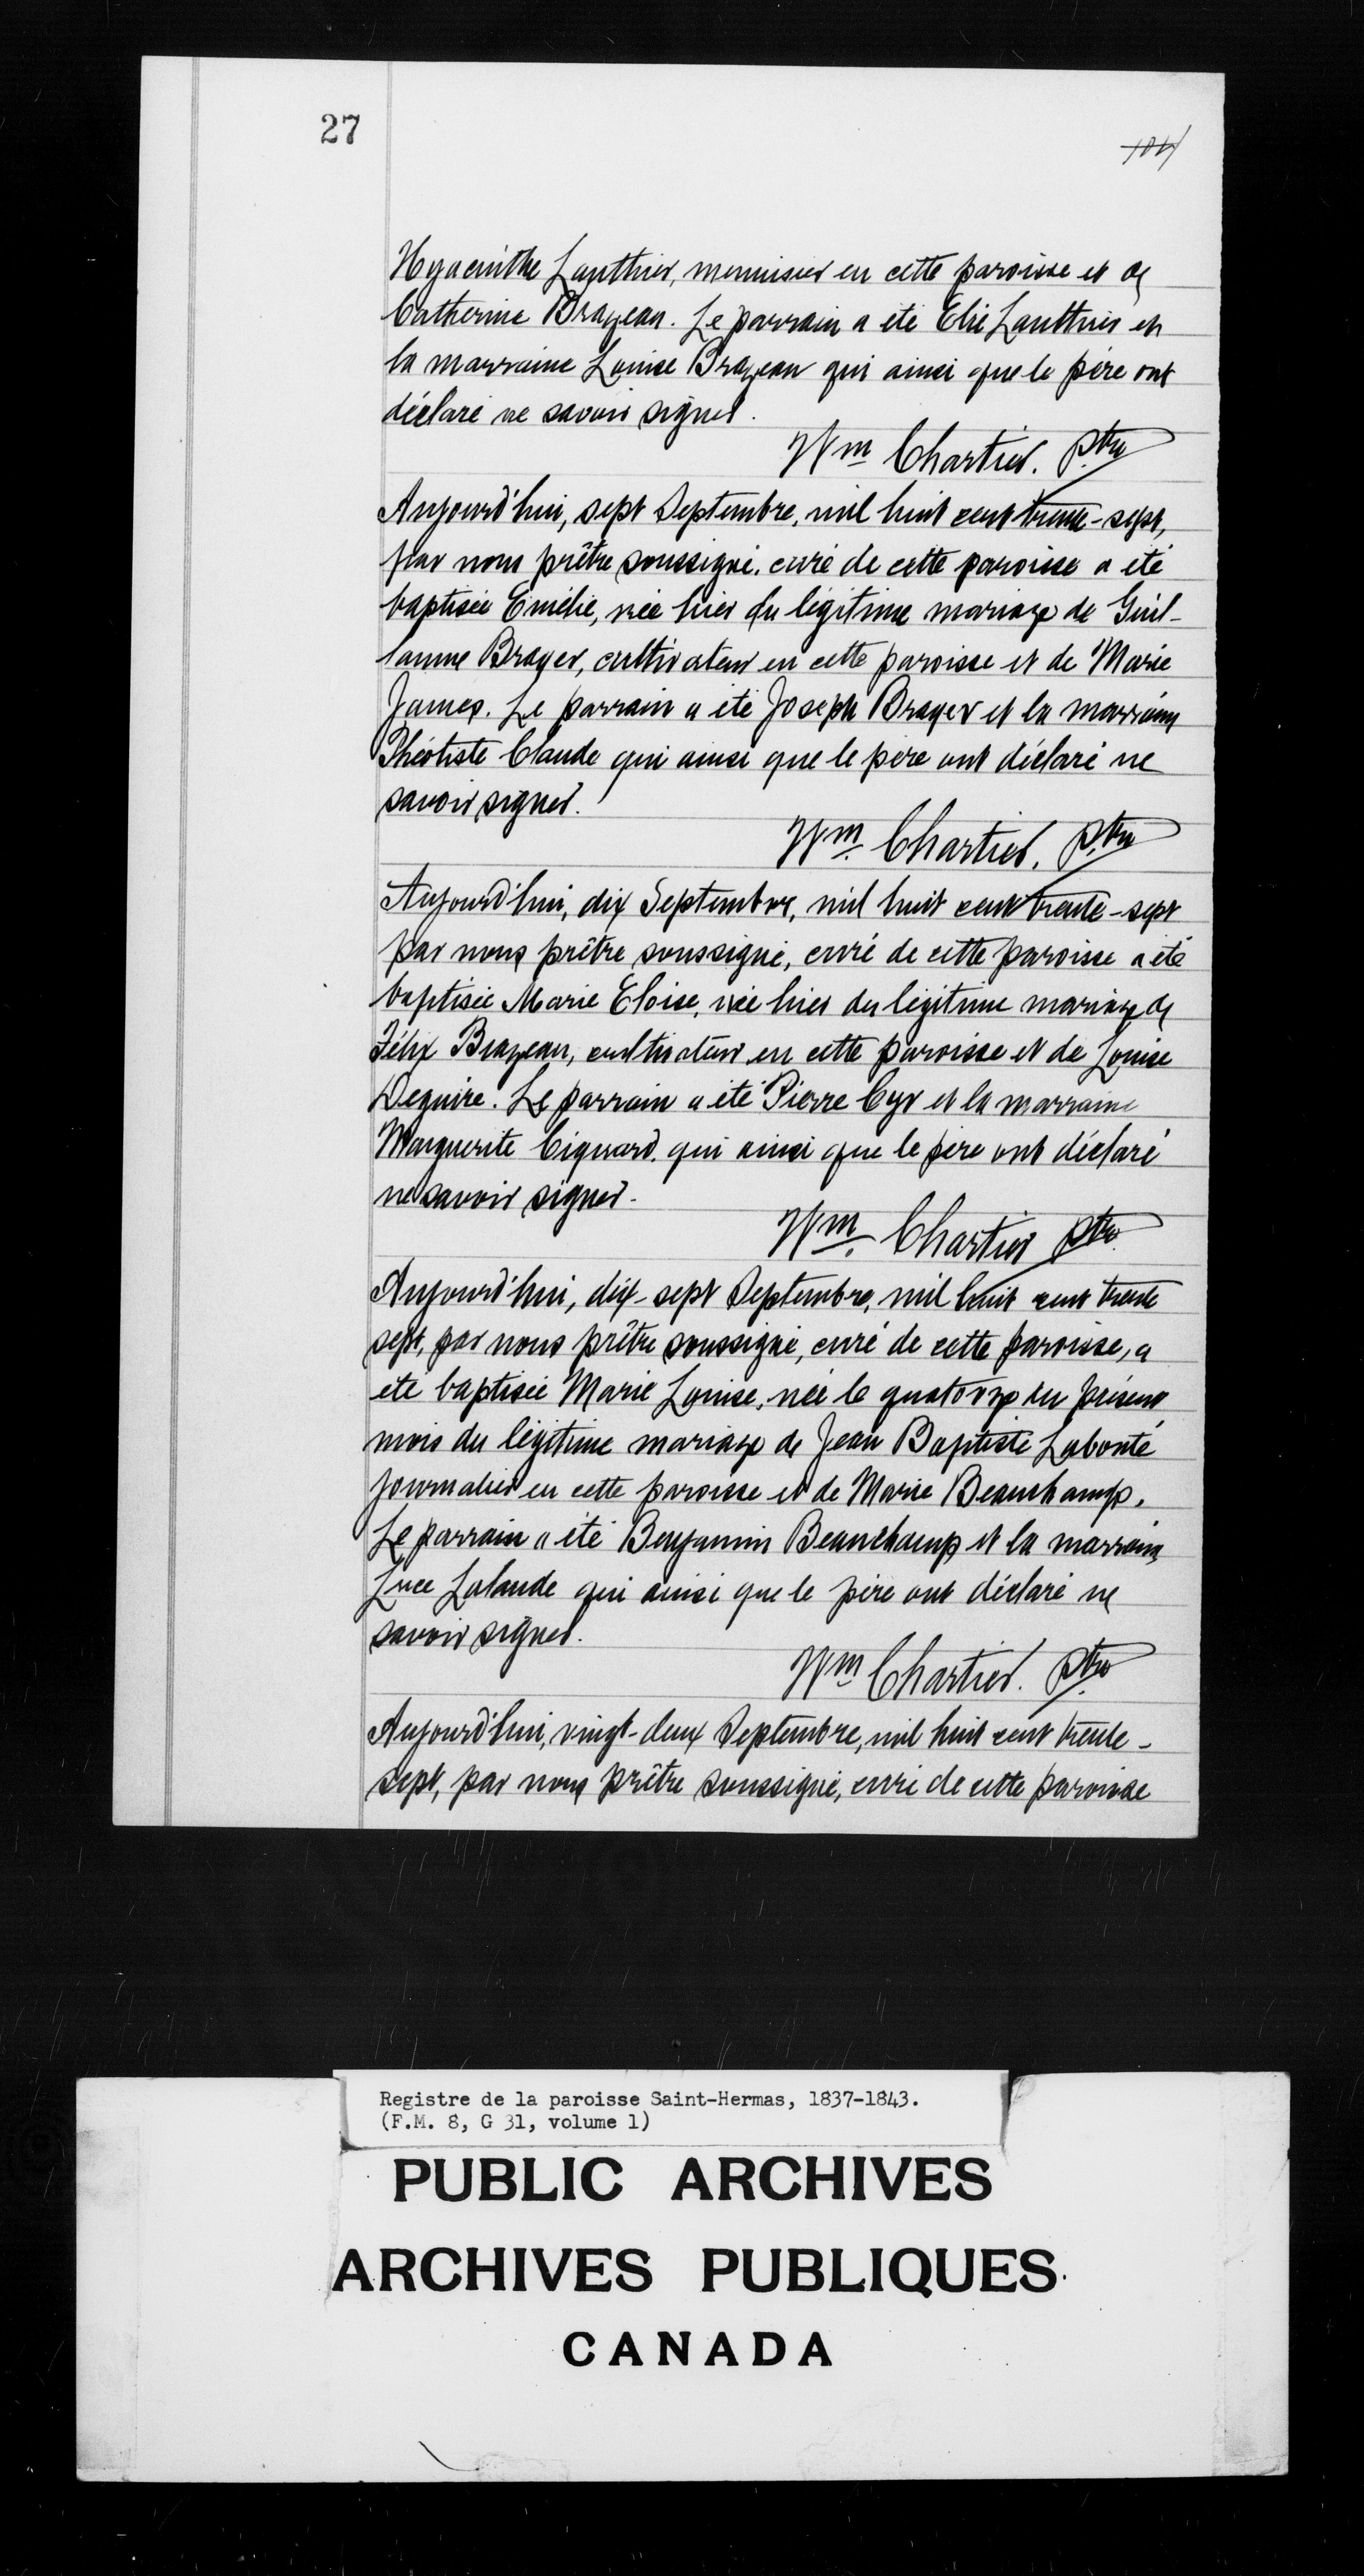 27
104
Hyacinthe Lauthier, menuisier en cette paroisse et de
Catherine Brazeau. Le parrain a été Elie Lauthier et
la marraine Louise Brazeau qui ainsi que le père ont
déclaré ne savoir signer.
Wm Chartier. Ptre
Aujourd'hui, sept Septembre, mil huit cent trente-sept,
par nous prêtre soussigné, curé de cette paroisse a été
baptisée Emélie, née hier du légitime mariage de Guil-
laume Brayer, cultivateur en cette paroisse et de Marie
James. Le parrain a été Joseph Brayer et la marraine
Théotiste Claude qui ainsi que le père ont déclaré ne
savoir signer.
Wm. Chartier. Ptre
Aujourd'hui, dix Septembre, mil huit cent trente-sept
par nous prêtre soussigné, curé de cette paroisse a été
baptisée Marie Eloise, née hier du légitime mariage de
Félix Brazeau, cultivateur en cette paroisse et de Louise
Deguire. Le parrain a été Pierre Cyr et la marraine
Marguerite Ciquard. qui ainsi que le père ont déclaré
ne savoir signer.
Wm. Chartier ptre
Aujourd'hui, dix-sept Septembre, mil huit cent trente
sept, par nous prêtre soussigné, curé de cette paroisse, a
été baptisée Marie Louise, née le quatorze du présent
mois du légitime mariage de Jean Baptiste Labonté
journalier en cette paroisse et de Marie Beauchamp.
Le parrain a été Benjamin Beauchamp et la marraine
Luce Lalande qui ainsi que le père ont déclaré ne
savoir signer.
Wm Chartier. ptre
Aujourd'hui, vingt-deux Septembre, mil huit cent trente-
sept, par nous prêtre soussigné, curé de cette paroisse
Registre de la paroisse Saint-Hermas, 1837-1843.
(F.M. 8, G 31, volume 1)
PUBLIC ARCHIVES
ARCHIVES PUBLIQUES
CANADA